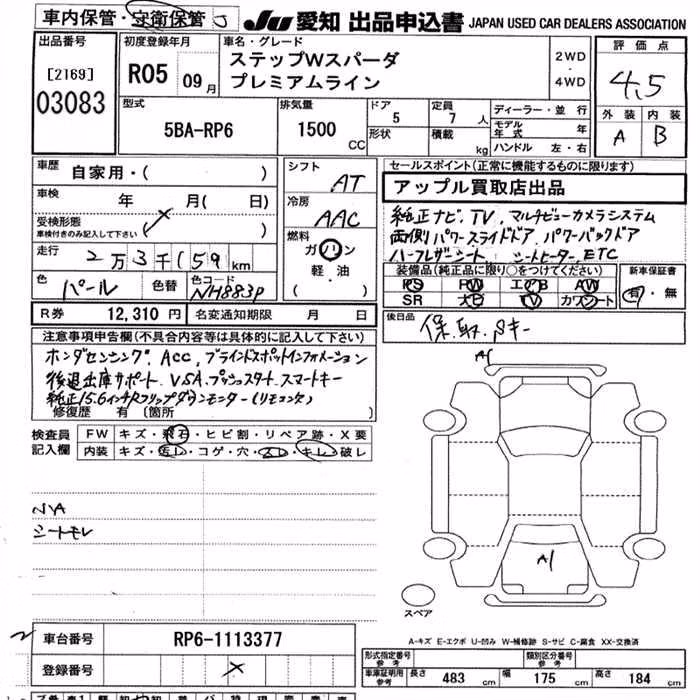 車内保管・守衛保管
JU 愛知 出品申込書 JAPAN USED CAR DEALERS ASSOCIATION
出品番号
[2169]
03083
初度登録年月
R05 09月
車名・グレード
ステップWスパーダ
プレミアムライン
2WD
・
4WD
評価点
4.5
外装 内装
A B
型式
5BA-RP6
排気量
1500 CC
ドア
5
形状
定員
7 人
積載
kg
ディーラー・並行
モデル年式 年
ハンドル 左・右
車歴 自家用・( )
車検 年 月( 日)
受検形態
車検付きのみ記入して下さい ( )
走行 2万3千(159 km
色 パール 色替 色コード NH883P
シフト
AT
冷房
AAC
燃料
ガソリン
軽・油
( )
セールスポイント(正常に機能するものに限ります)
アップル買取店出品
純正ナビ、TV、マルチビューカメラシステム
両側パワースライドドア、パワーバックドア
ハーフレザーシート シートヒーター、ETC
装備品(純正品に限り○をつけてください)
PS PW エアB AW
SR ナビ TV カワシート
新車保証書
有・無
R券 12,310 円 名変通知期限 月 日
後日品 保、取、Sキー
注意事項申告欄(不具合内容等は具体的に記入して下さい)
ホンダセンシング、ACC、ブラインドスポットインフォメーション
後退出庫サポート、VSA、プッシュスタート、スマートキー
純正15.6インチRフリップダウンモニター(リモコン欠)
修復歴 有 〔箇所 〕
検査員
記入欄
FW キズ・飛石・ヒビ割・リペア跡・X要
内装 キズ・汚レ・コゲ・穴・スレ・キレ・破レ
シートモレ
A1
A1
スペア
A-キズ E-エクボ U-凹み W-補修跡 S-サビ C-腐食 XX-交換済
車台番号 RP6-1113377
登録番号
型式指定番号
参考
類別区分番号
参考
車庫証明用
参考
長さ 483 cm 幅 175 cm 高さ 184 cm